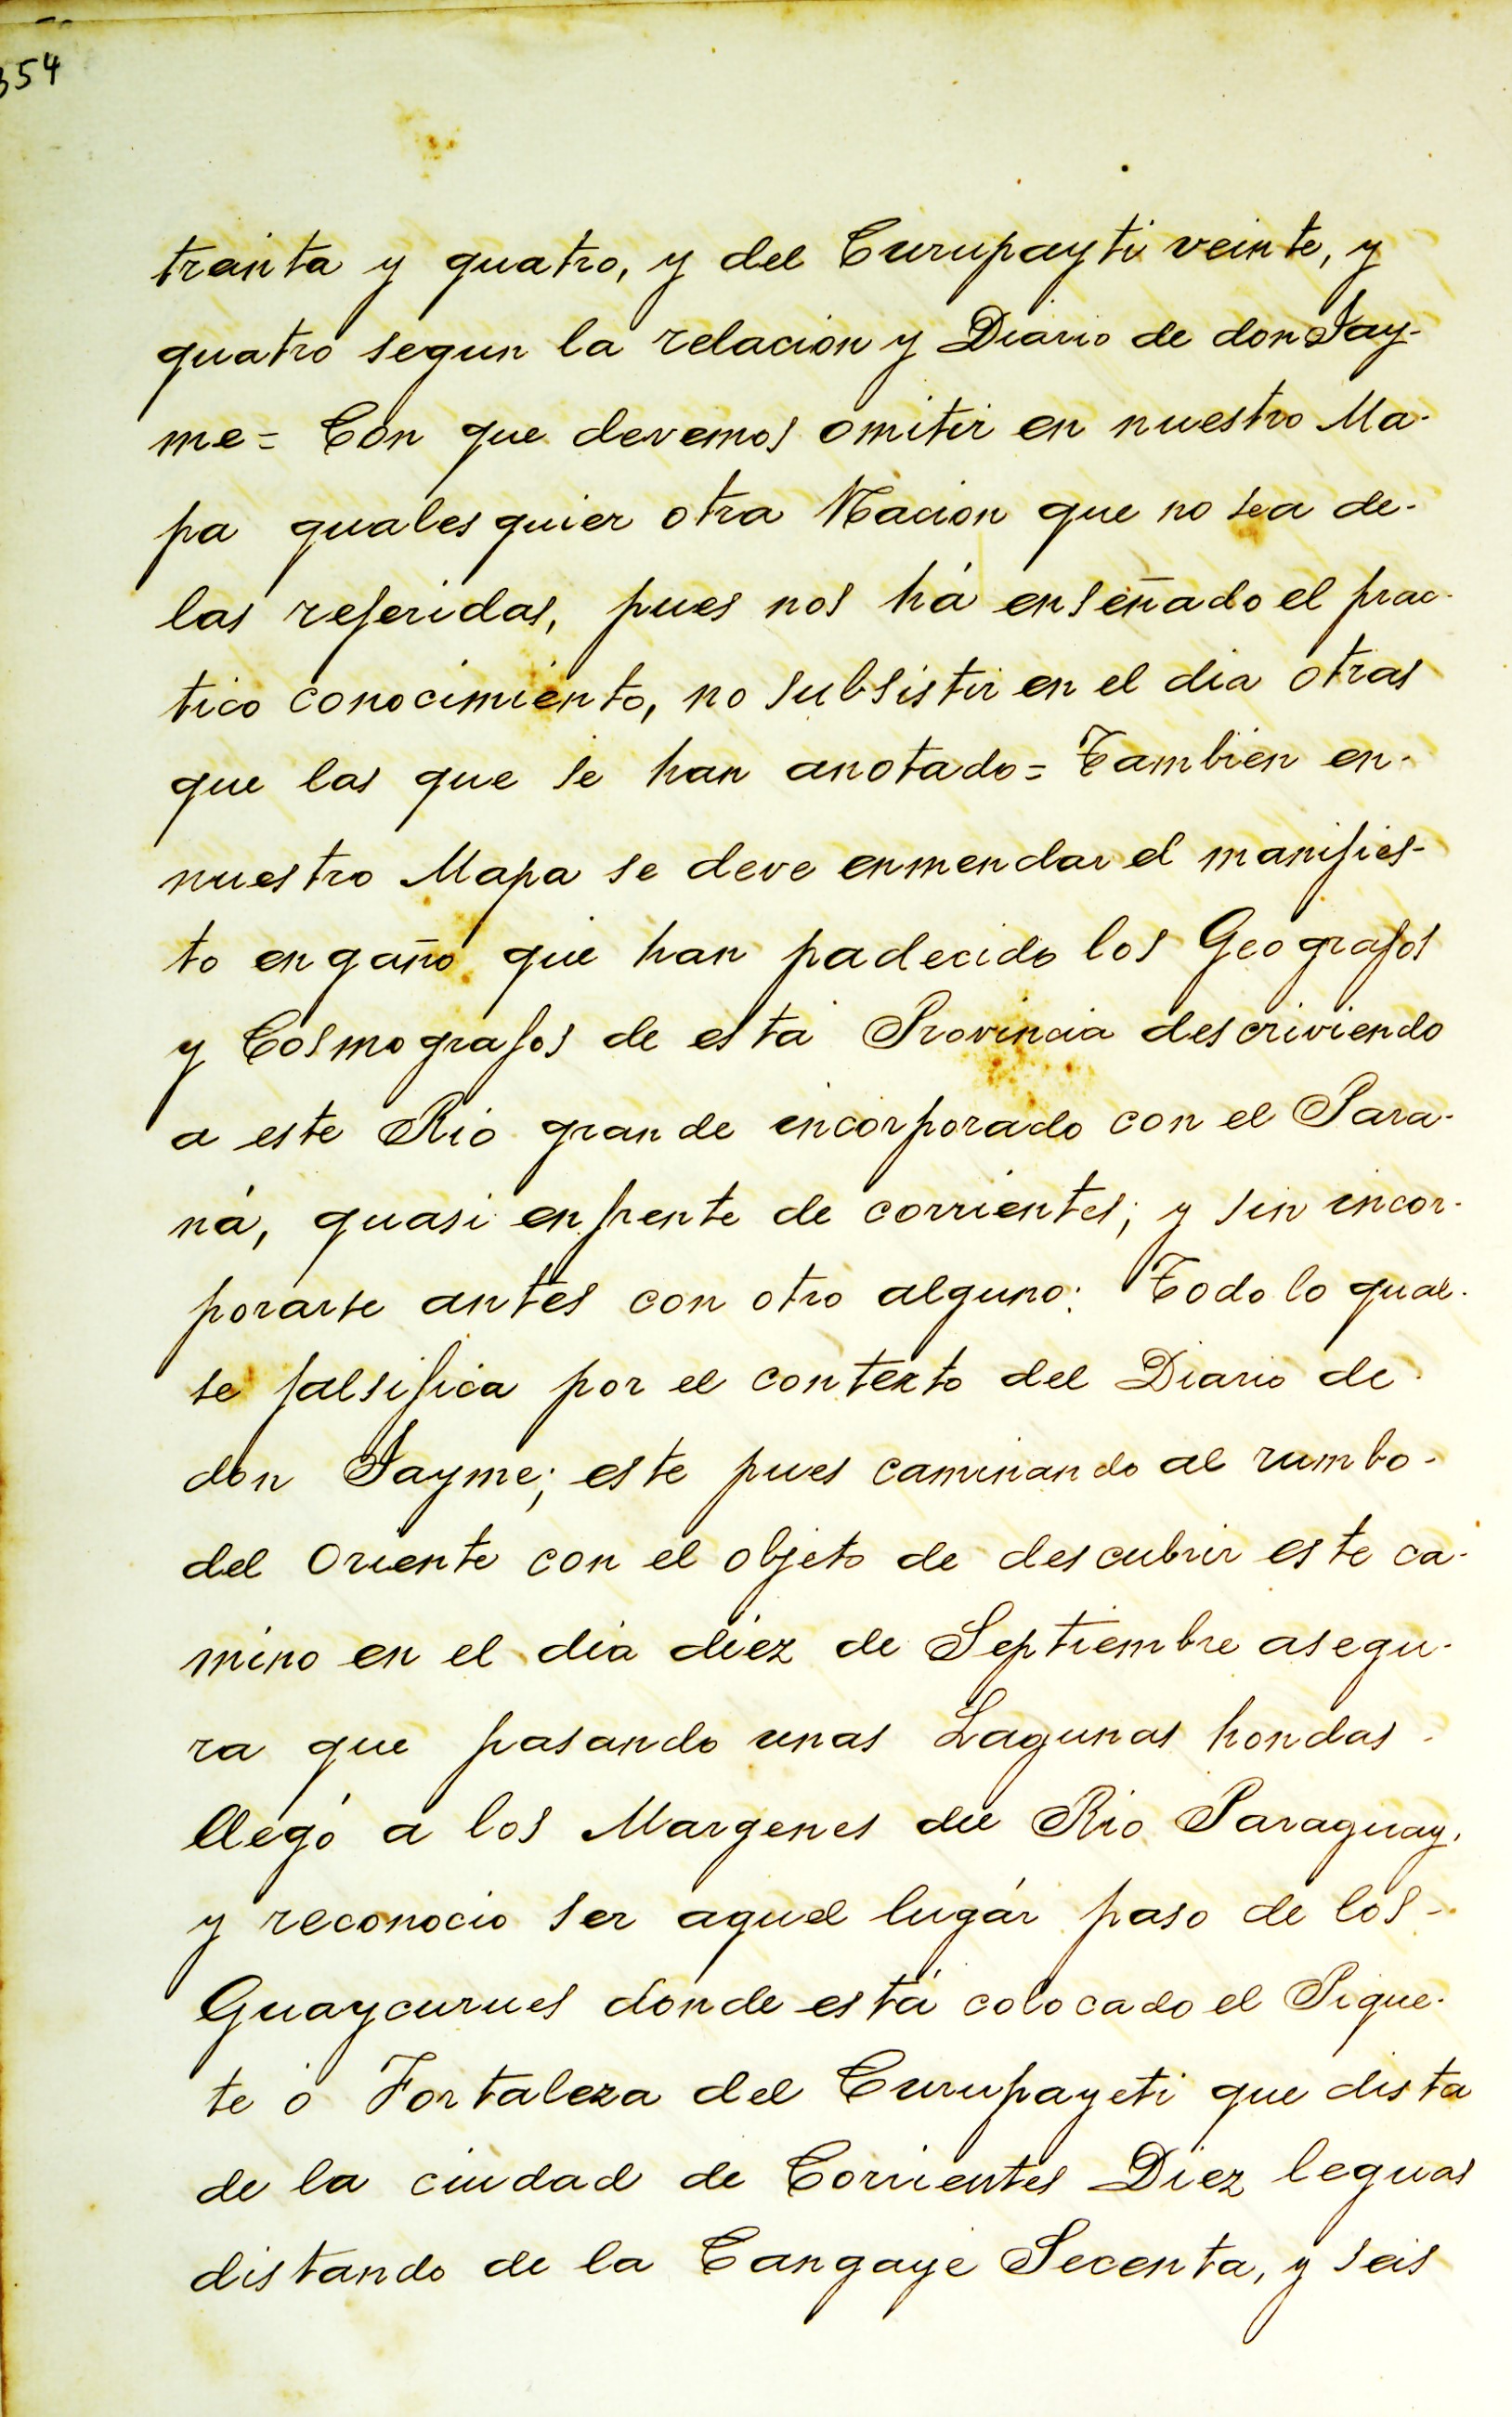 354
trainta y quatro, y del Curupayti veinte, y
quatro segun la relacion y Diario de don Jay-
me= Con que devemos omitir en nuestro Ma-
pa qualesquier otra Nacion que no sea de-
las referidas, pues nos há enseñado el prac-
tico conocimiento, no subsistir en el dia otras
que las que se han anotado= Tambien en-
nuestro Mapa se deve enmendar el manifies-
to engaño que han padecido los Geografos
y Cosmografos de esta Provincia descriviendo
a este Rio grande incorporado con el Para-
ná, quasi enfrente de corrientes; y sin incor-
porarse antes con otro alguno: Todo lo qual-
se falsifica por el contexto del Diario de-
don Jayme; este pues caminando al rumbo-
del Oriente con el objeto de descubrir este ca-
mino en el dia diez de Septiembre asegu-
ra que pasando unas Lagunas hondas-
llegó a los Margenes del Rio Paraguay,
y reconocio ser aquel lugár paso de los-
Guaycurues donde está colocado el Pique-
te ó Fortaleza del Curupayeti que dista
de la ciudad de Corrientes Diez leguas
distando de la Cangaye Secenta, y seis